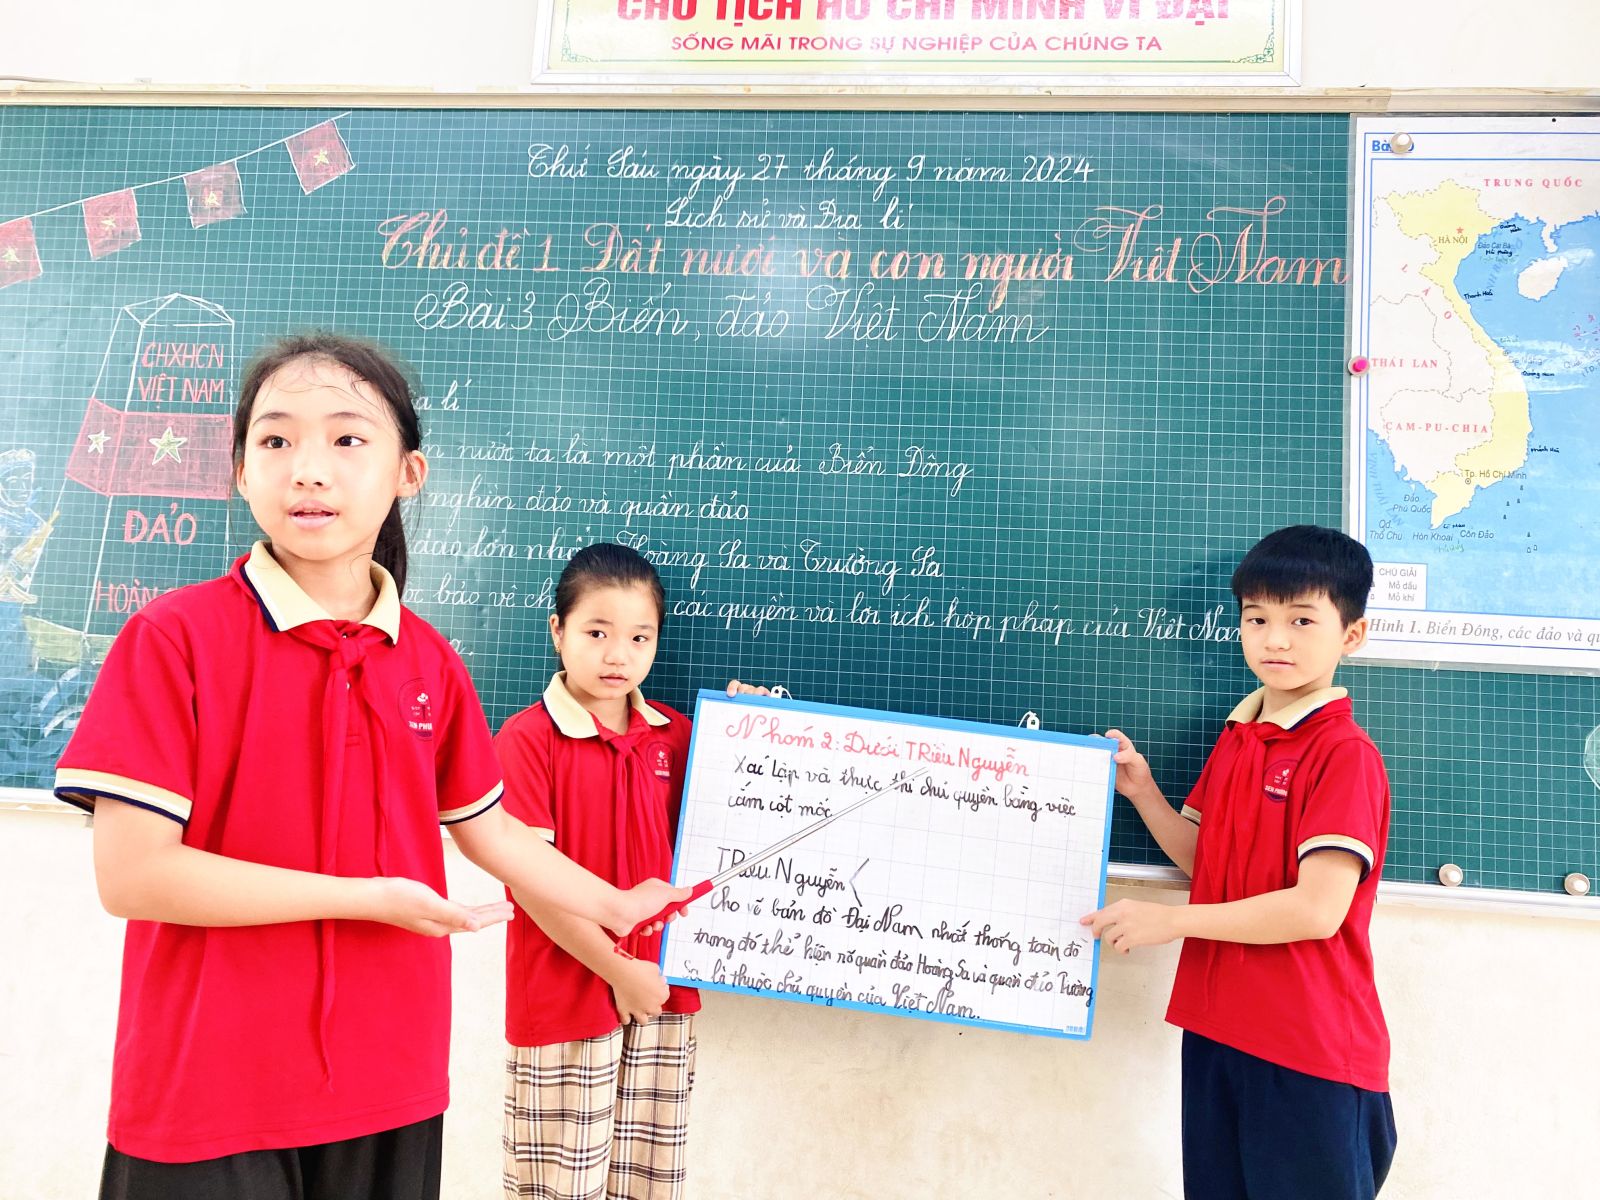 CHỦ TỊCH HỒ CHÍ MINH VĨ ĐẠI
SỐNG MÃI TRONG SỰ NGHIỆP CỦA CHÚNG TA
Thứ Sáu ngày 27 tháng 9 năm 2024
Lịch sử và Địa lí
Chủ đề 1 Đất nước và con người Việt Nam
Bài 3 Biển, đảo Việt Nam
CHXHCN
VIỆT NAM
ĐẢO
HOÀN
a lí
n nước ta là một phần của Biển Đông
nghìn đảo và quần đảo
đảo lớn nhất Hoàng Sa và Trường Sa
bảo vệ ch các quyền và lợi ích hợp pháp của Việt Nam
Nhóm 2: Dưới TRiều Nguyễn
Xaí Lập và thực thi chủ quyền bằng việc
cắm cột mốc
TRiều Nguyễn
Cho vẽ bản đồ Đại Nam nhất thống toàn đồ
trong đó thể hiện rõ quần đảo Hoàng Sa và quần đảo Trường
Sa là thuộc chủ quyền của Việt Nam.
TRUNG QUỐC
HÀ NỘI
Đảo Cát Bà
Hải Phòng
Thanh Hoá
LÀO
THÁI LAN
Đà Nẵng
Quảng Nam
CAM-PU-CHIA
Khánh Hoà
Tp. Hồ Chí Minh
VỊNH THÁI LAN
Đảo
Phú Quốc
Qđ.
Thổ Chu
Hòn Khoai
Côn Đảo
CHÚ GIẢI
Mỏ dầu
Mỏ khí
Hình 1. Biển Đông, các đảo và qu